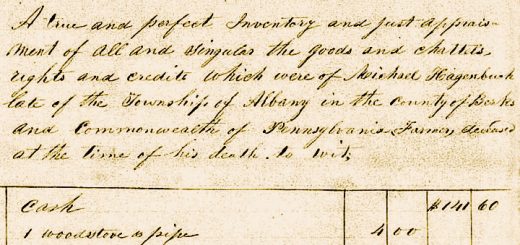 A true and perfect Inventory and just apprais-
ment of all and singular the goods and chattels
rights and credits which were of Michael Hagenbuch
late of the Township of Albany in the county of Berks
and Commonwealth of Pennsylvania Farmer, deceased
at the time of his death. to wit,
Cash $141 60
1 woodstove & pipe 4 00